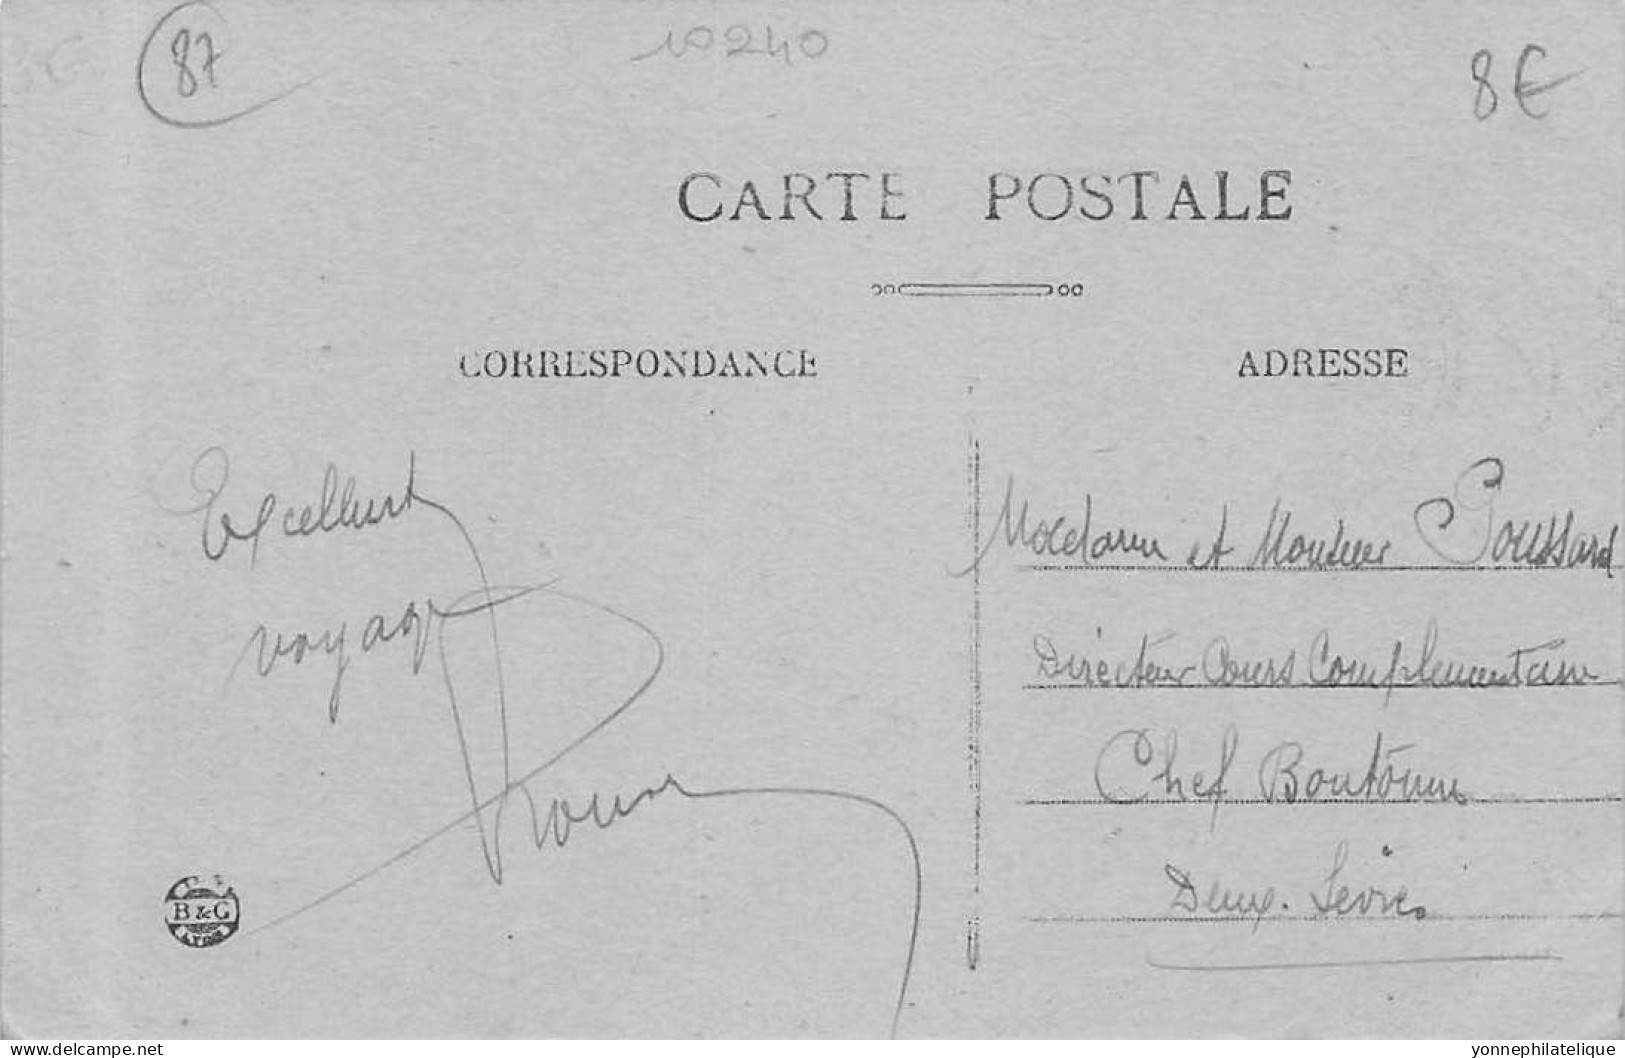 87
10240
8€
CARTE POSTALE
CORRESPONDANCE
ADRESSE
Excellent
voyage
Madame et Monsieur Poussard
Directeur Cours Complémentaire
Chef Boutonne
Deux-Sèvres
B & G
delcampe.net
yonnephilatelique